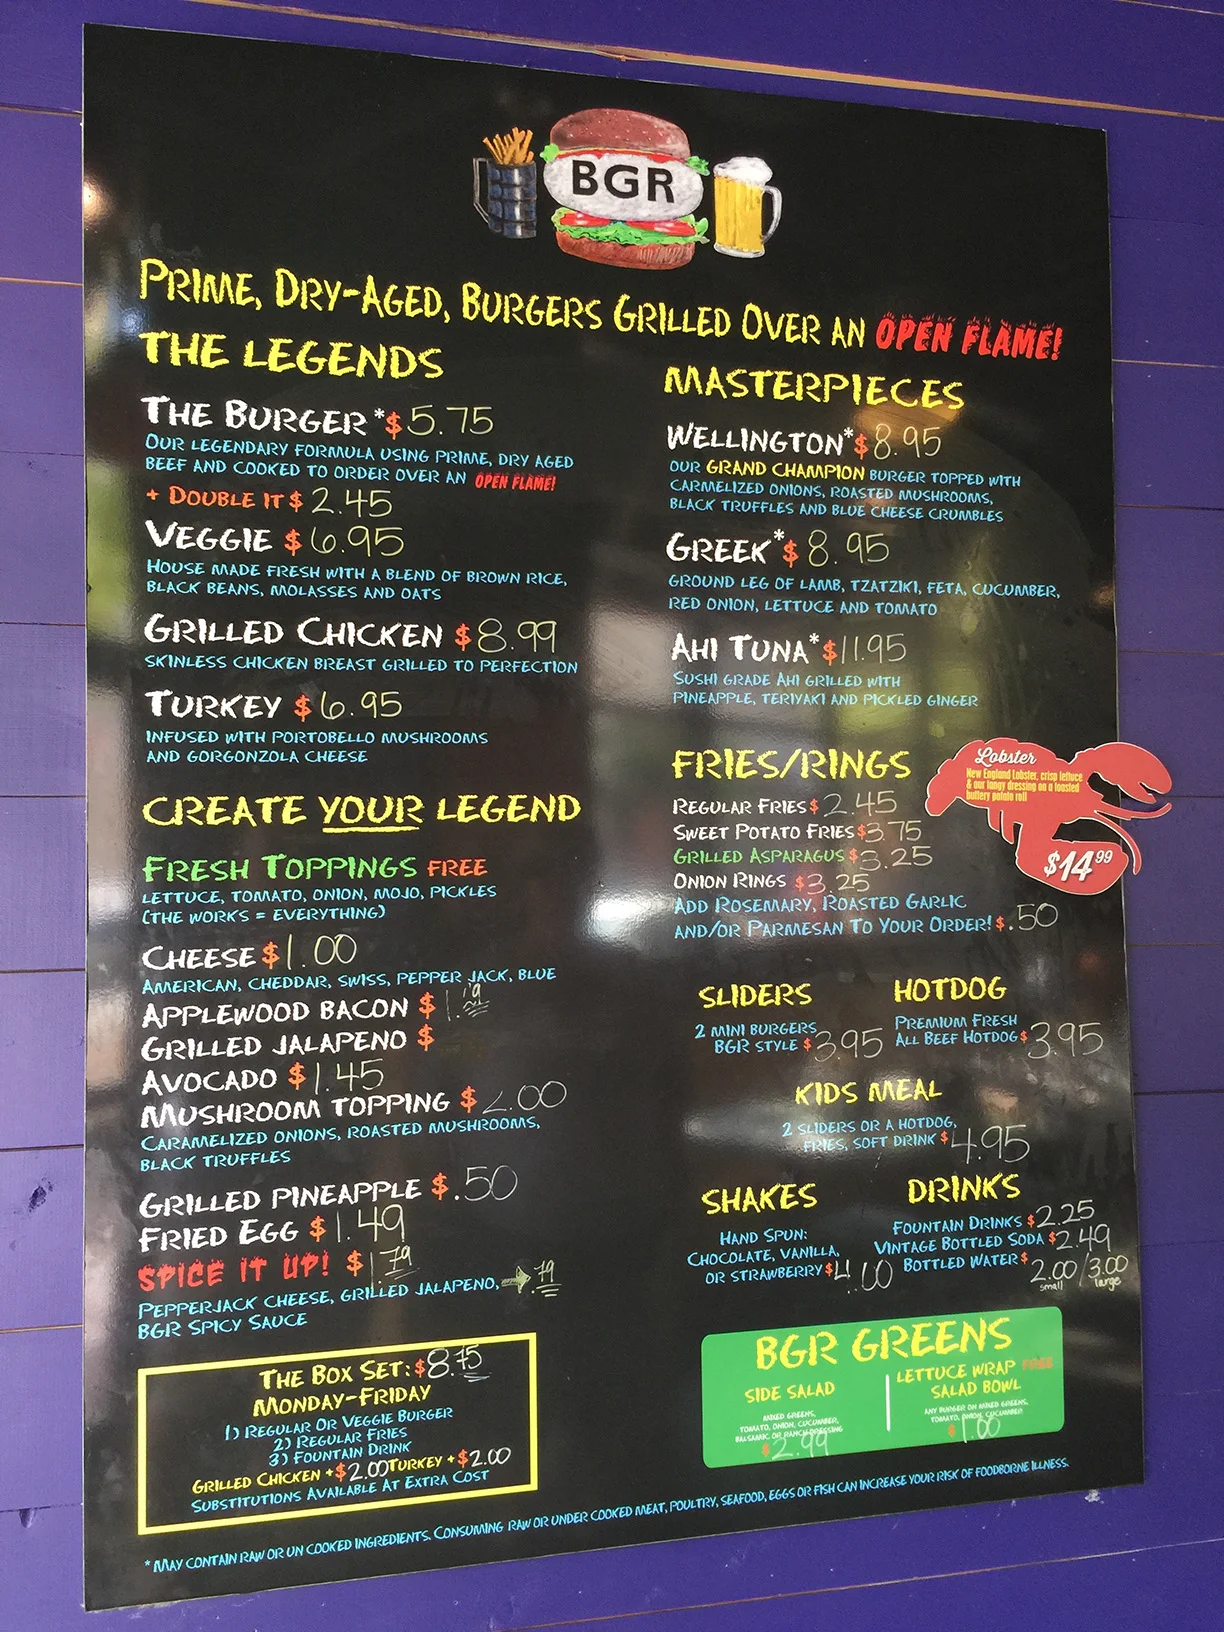 BGR
PRIME, DRY-AGED, BURGERS GRILLED OVER AN OPEN FLAME!
THE LEGENDS
THE BURGER *$5.75
OUR LEGENDARY FORMULA USING PRIME, DRY AGED
BEEF AND COOKED TO ORDER OVER AN OPEN FLAME!
+ DOUBLE IT $2.45
VEGGIE $6.95
HOUSE MADE FRESH WITH A BLEND OF BROWN RICE,
BLACK BEANS, MOLASSES AND OATS
GRILLED CHICKEN $8.99
SKINLESS CHICKEN BREAST GRILLED TO PERFECTION
TURKEY $6.95
INFUSED WITH PORTOBELLO MUSHROOMS
AND GORGONZOLA CHEESE
CREATE YOUR LEGEND
FRESH TOPPINGS FREE
LETTUCE, TOMATO, ONION, MOJO, PICKLES
(THE WORKS = EVERYTHING)
CHEESE $1.00
AMERICAN, CHEDDAR, SWISS, PEPPER JACK, BLUE
APPLEWOOD BACON $
GRILLED JALAPENO $
AVOCADO $1.45
MUSHROOM TOPPING $2.00
CARAMELIZED ONIONS, ROASTED MUSHROOMS,
BLACK TRUFFLES
GRILLED PINEAPPLE $.50
FRIED EGG $1.49
SPICE IT UP! $1.79
PEPPERJACK CHEESE, GRILLED JALAPENO, → .79
BGR SPICY SAUCE
THE BOX SET: $8.75
MONDAY-FRIDAY
1) REGULAR OR VEGGIE BURGER
2) REGULAR FRIES
3) FOUNTAIN DRINK
GRILLED CHICKEN +$2.00 TURKEY +$2.00
SUBSTITUTIONS AVAILABLE AT EXTRA COST
MASTERPIECES
WELLINGTON*$8.95
OUR GRAND CHAMPION BURGER TOPPED WITH
CARMELIZED ONIONS, ROASTED MUSHROOMS,
BLACK TRUFFLES AND BLUE CHEESE CRUMBLES
GREEK*$8.95
GROUND LEG OF LAMB, TZATZIKI, FETA, CUCUMBER,
RED ONION, LETTUCE AND TOMATO
AHI TUNA*$11.95
SUSHI GRADE AHI GRILLED WITH
PINEAPPLE, TERIYAKI AND PICKLED GINGER
FRIES/RINGS
REGULAR FRIES $2.45
SWEET POTATO FRIES $3.75
GRILLED ASPARAGUS $3.25
ONION RINGS $3.25
ADD ROSEMARY, ROASTED GARLIC
AND/OR PARMESAN TO YOUR ORDER! $.50
Lobster
New England Lobster, crisp lettuce
& our tangy dressing on a toasted
buttery potato roll
$14.99
SLIDERS
2 MINI BURGERS
BGR STYLE $3.95
HOTDOG
PREMIUM FRESH
ALL BEEF HOTDOG $3.95
KIDS MEAL
2 SLIDERS OR A HOTDOG,
FRIES, SOFT DRINK $4.95
SHAKES
HAND SPUN:
CHOCOLATE, VANILLA,
OR STRAWBERRY $4.00
DRINKS
FOUNTAIN DRINKS $2.25
VINTAGE BOTTLED SODA $2.49
BOTTLED WATER $2.00/3.00
small large
BGR GREENS
SIDE SALAD
MIXED GREENS,
TOMATO, ONION, CUCUMBER,
BALSAMIC OR RANCH DRESSING
$2.99
LETTUCE WRAP FREE
SALAD BOWL
ANY BURGER ON MIXED GREENS,
TOMATO, ONION, CUCUMBER
$1.00
* MAY CONTAIN RAW OR UN COOKED INGREDIENTS. CONSUMING RAW OR UNDER COOKED MEAT, POULTRY, SEAFOOD, EGGS OR FISH CAN INCREASE YOUR RISK OF FOODBORNE ILLNESS.